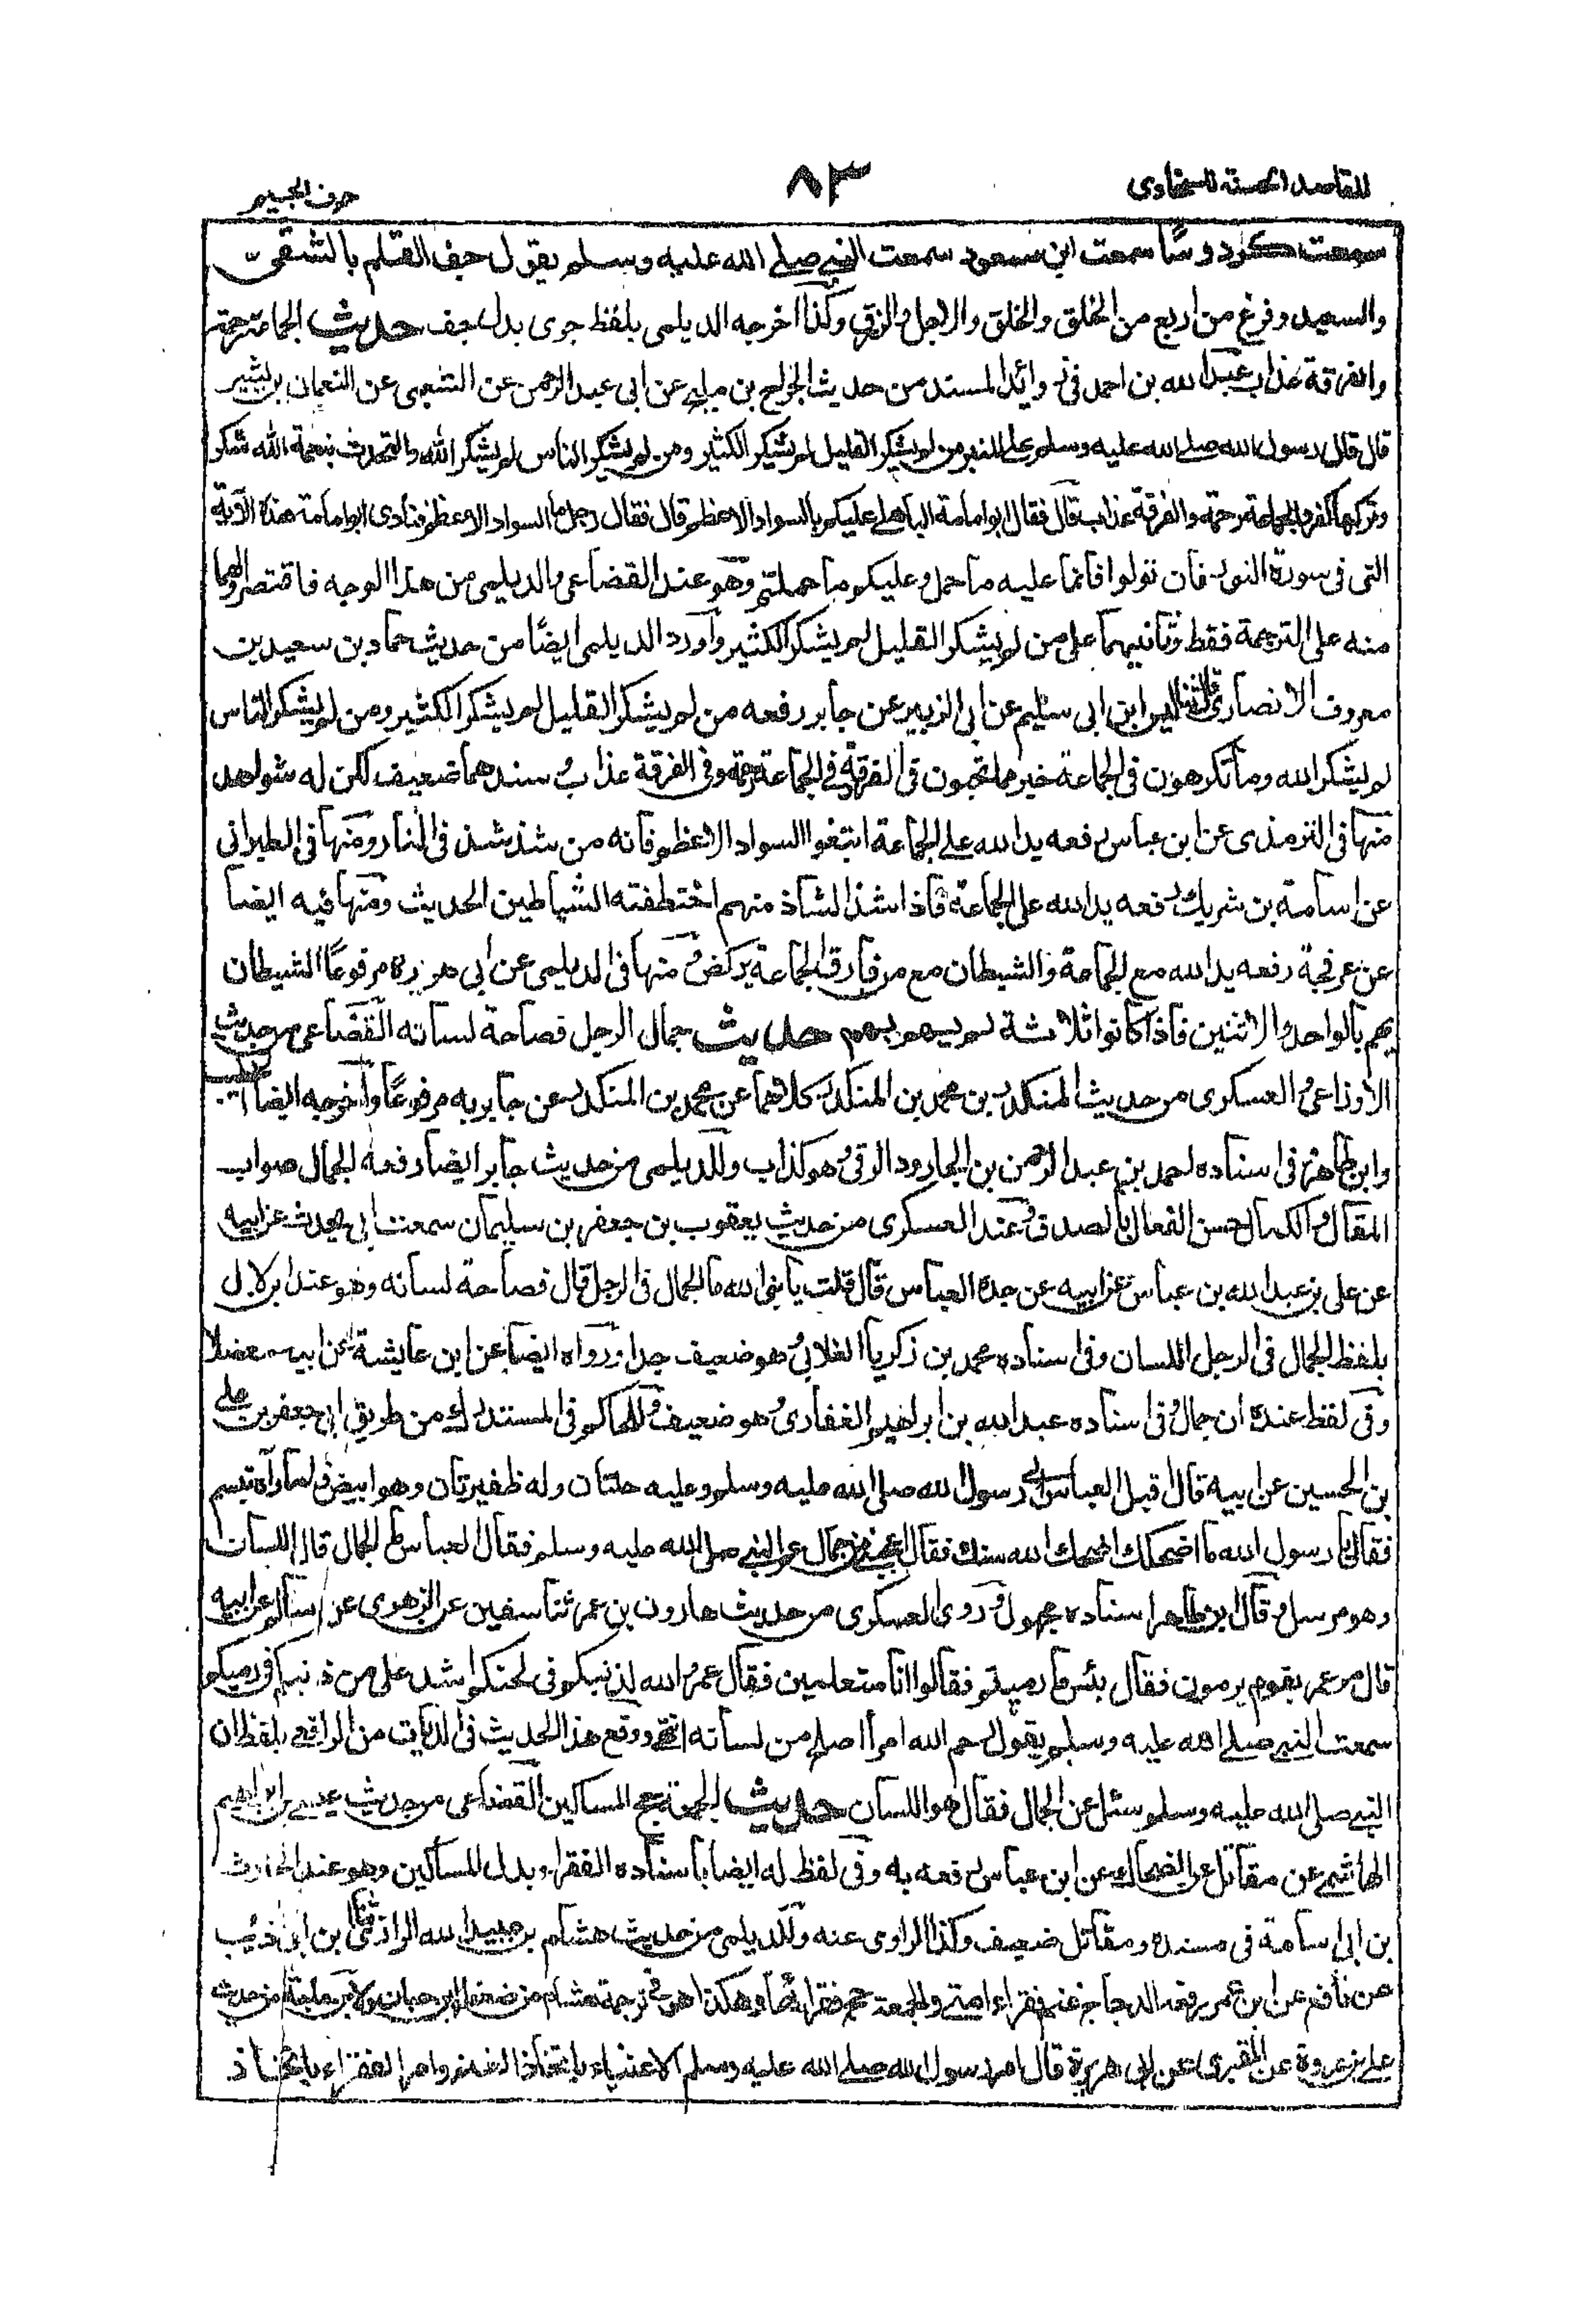 المقاصد الحسنة للسخاوى
٨٣
حرف الجيم
سمعت كردوسًا سمعت ابن مسعود سمعت النبي صلے الله عليه وسلم يقول جف القلم بالشقى
والسعيد وفرغ من اربع من الخلق والخلق والاجل والرزق وكذا اخرجه الديلمى بلفظ جرى بدل جف حديث الجماعة رحمة
والفرقة عذاب عبد الله بن احمد فى زوائد المسند من حديث الجراح بن مليح عن ابى عبد الرحمن عن الشعبى عن النعمان بن بشير
قال قال رسول الله صلے الله عليه وسلم على المنبر من لم يشكر القليل لم يشكر الكثير ومن لم يشكر الناس لم يشكر الله والتحدث بنعمة الله شكر
وتركها كفر والجماعة رحمة والفرقة عذاب قال فقال ابو امامة الباهلے عليكم بالسواد الاعظم قال فقال رجل ما السواد الاعظم فنادى ابو امامة هذه الآية
التى فى سورة النور فان تولوا فانما عليه ما حمل وعليكم ما حملتم وهو عند القضاعى والديلمى من هذا الوجه فاقتصر اولهما
منه على الترجمة فقط وثانيهما على من لم يشكر القليل لم يشكر الكثير واورد الديلمى ايضًا من حديث حماد بن سعيد بن
معروف الانصارى ثنا ليث ابن ابى سليم عن ابى الزبير عن جابر رفعه من لم يشكر القليل لم يشكر الكثير ومن لم يشكر الناس
لم يشكر الله وما تكرهون فى الجماعة خير مما تحبون فى الفرقة وفى الجماعة رحمة وفى الفرقة عذاب وسندهما ضعيف لكن له شواهد
منها فى الترمذى عن ابن عباس رفعه يد الله على الجماعة اتبعوا السواد الاعظم فانه من شذ شذ فى النار ومنها فى الطبرانى
عن اسامة بن شريك رفعه يد الله على الجماعة فاذا شذ الشاذ منهم اختطفته الشياطين الحديث ومنها فيه ايضا
عن عرفجة رفعه يد الله مع الجماعة والشيطان مع من فارق الجماعة يركض ومنها فى الديلمى عن ابى هريرة مرفوعًا الشيطان
يهم بالواحد والاثنين فاذا كانوا ثلاثة لم يهم بهم حديث جمال الرجل فصاحة لسانه القضاعى من حديث
الاوزاعى والعسكرى من حديث المنكدر بن محمد بن المنكدر كلاهما عن محمد بن المنكدر عن جابر به مرفوعًا واخرجه ايضا الخطيب
وابن طاهر وفى اسناده احمد بن عبد الرحمن بن الجارود الرقى وهو كذاب وللديلمى من حديث جابر ايضا رفعه الجمال صواب
المقال والكمال حسن الفعال بالصدق وعند العسكرى من حديث يعقوب بن جعفر بن سليمان سمعت ابى يحدث عن ابيه
عن على بن عبد الله بن عباس عن ابيه عن جده العباس قال قلت يا نبى الله ما الجمال فى الرجل قال فصاحة لسانه وهو عند ابن لال
بلفظ الجمال فى الرجل اللسان وفى اسناده محمد بن زكريا الغلابى وهو ضعيف جدا ورواه ايضا عن ابن عايشة عن ابيه معضلا
وفى لفظ عنده ان جمال وفى اسناده عبد الله بن ابراهيم الغفارى وهو ضعيف وللحاكم فى المستدرك من طريق ابى جعفر بن علے
بن الحسين عن ابيه قال اقبل العباس الى رسول الله صلى الله عليه وسلم وعليه حلتان وله ظفيرتان وهو ابيض فلما رآه تبسم
فقال يا رسول الله ما اضحكك اضحك الله سنك فقال اعجبنى جمال عم النبي صلى الله عليه وسلم فقال العباس ما الجمال قال اللسان
وهو مرسل وقال ابن طاهر اسناده مجهول وروى العسكرى من حديث هارون بن عمر ثنا سفين عن الزهرى عن سالم عن ابيه
قال مر عمر بقوم يرمون فقال بئس ما رميتم فقالوا انا متعلمين فقال عمر والله لذنبكم فى لحنكم اشد على من ذنبكم فى رميكم
سمعت النبي صلے الله عليه وسلم يقول رحم الله امرأ اصلح من لسانه انتهى ووقع هذا الحديث فى الديات من الرافعى بلفظ ان
النبي صلى الله عليه وسلم سئل عن الجمال فقال هو اللسان حديث الجمعة حج المساكين القضاعى من حديث عيسى بن ابراهيم
الهاشمى عن مقاتل عن الضحاك عن ابن عباس رفعه به وفى لفظ له ايضا باسناده الفقراء بدل المساكين وهو عند الحارث
بن ابى اسامة فى مسنده ومقاتل ضعيف وكذا الراوى عنه وللديلمى من حديث هشام بن عبيد الله الرازى ثنا بن ابى ذئب
عن نافع عن ابن عمر رفعه الدجاج غنم فقراء امتى والجمعة حج فقرائها وهكذا هو فى ترجمة هشام من ضعفاء ابن حبان ولابن ماجة من حديث
على بن عروة عن المقبرى عن ابى هريرة قال امر رسول الله صلے الله عليه وسلم الاغنياء باتخاذ الغنم وامر الفقراء باتخاذ